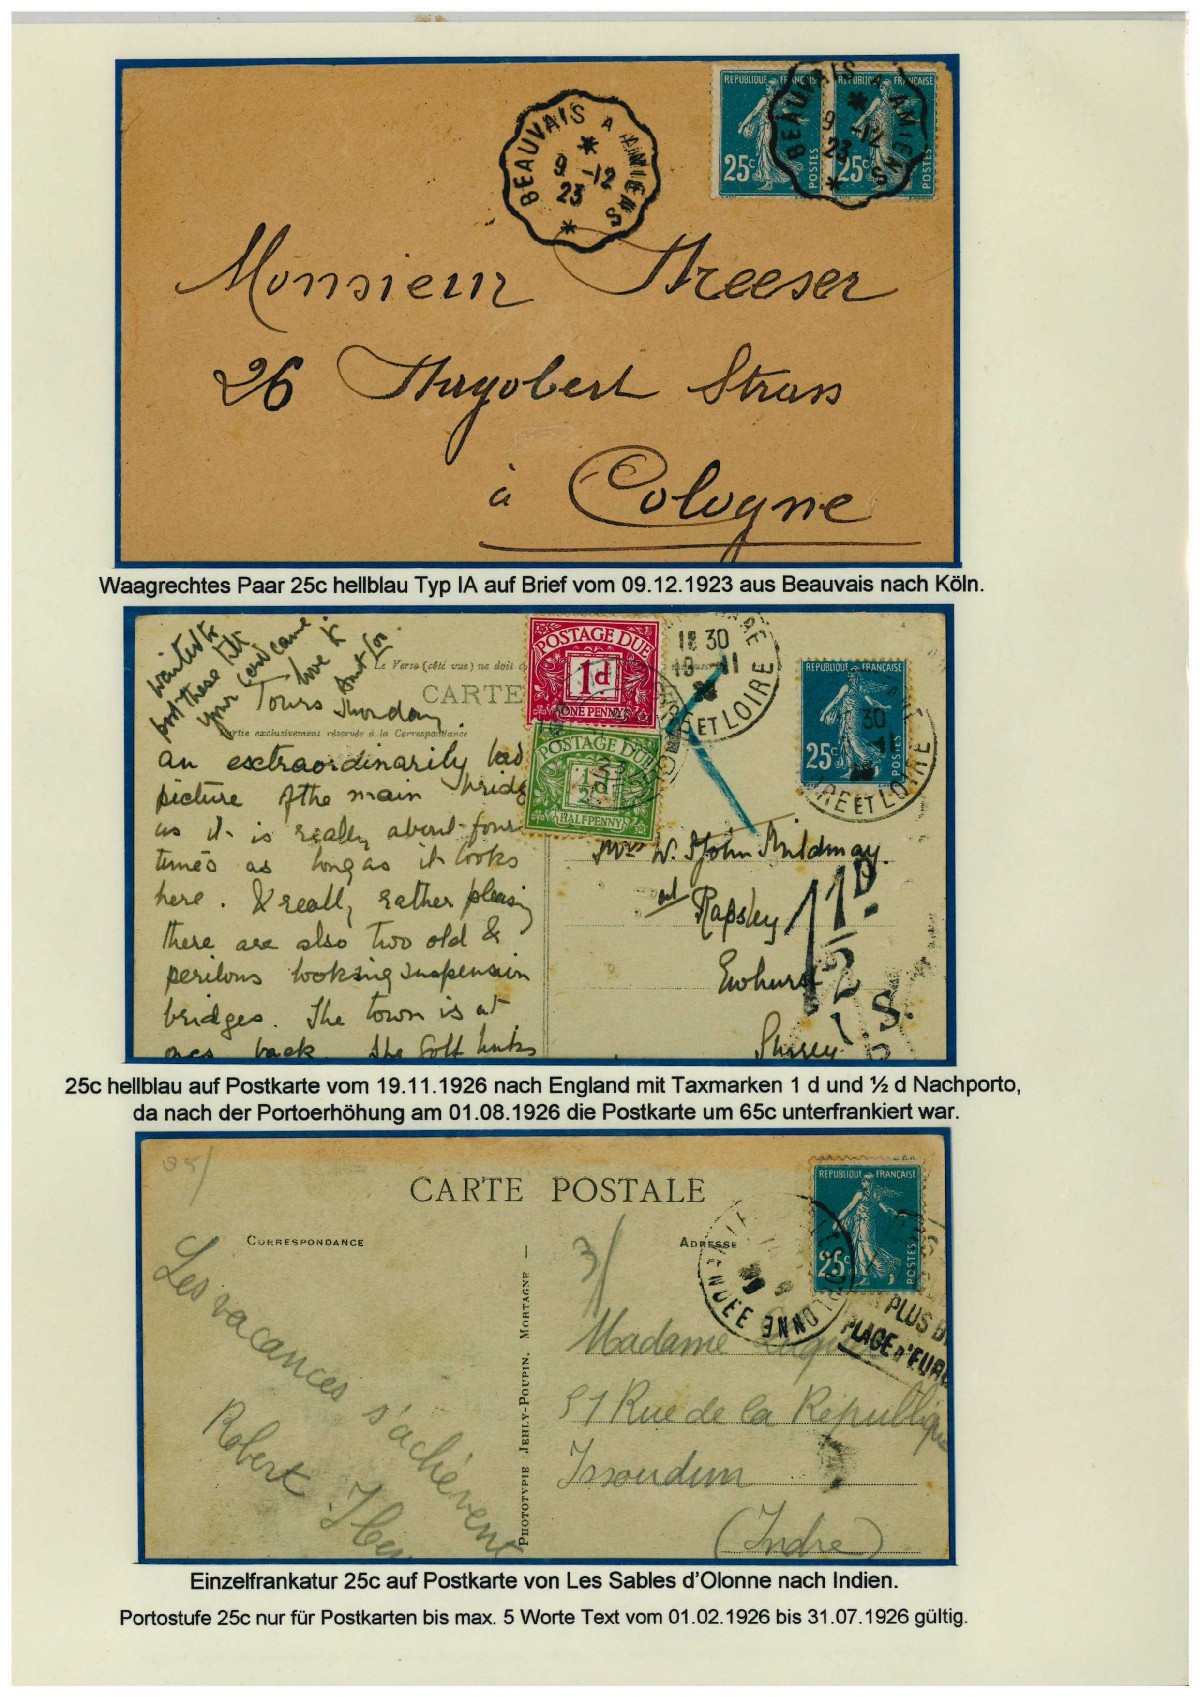 REPUBLIQUE FRANÇAISE
REPUBLIQUE FRANÇAISE
25c POSTES
25c POSTES
BEAUVAIS A AMIENS
9 -12
23
BEAUVAIS A AMIENS
9 -12
23
Monsieur Treeser
26 Strass
à Cologne
Waagrechtes Paar 25c hellblau Typ IA auf Brief vom 09.12.1923 aus Beauvais nach Köln.
wanted to
post these till
your card came
love
Le Verso (côté vue) ne doit
CARTE
Partie exclusivement réservée à la Correspondance
Tours Thursday
an extraordinarily bad
picture of the main bridge
as it is really about four
times as long as it looks
here. & really rather pleasing
there are also two old &
perilous looking suspension
bridges. The town is at
ones back. The Golf links
POSTAGE DUE
1d
ONE PENNY
POSTAGE DUE
1/2d
HALFPENNY
18 30
19 -11
RE ET LOIRE
REPUBLIQUE FRANÇAISE
25c
30
11
IRE ET LOIRE
Mrs W. St John Mildmay
at Rapsley
Ewhurst
Surrey
1 1/2 D.
I.S.
25c hellblau auf Postkarte vom 19.11.1926 nach England mit Taxmarken 1 d und ½ d Nachporto,
da nach der Portoerhöhung am 01.08.1926 die Postkarte um 65c unterfrankiert war.
CARTE POSTALE
CORRESPONDANCE
ADRESSE
REPUBLIQUE FRANÇAISE
25c POSTES
D'OLONNE
VENDEE
PLUS B
PLAGE D'EURO
Les vacances s'achèvent
Robert
PHOTOTYPIE JEHLY-POUPIN, MORTAGNE
3/
Madame
51 Rue de la République
Issoudun
(Indre)
Einzelfrankatur 25c auf Postkarte von Les Sables d'Olonne nach Indien.
Portostufe 25c nur für Postkarten bis max. 5 Worte Text vom 01.02.1926 bis 31.07.1926 gültig.